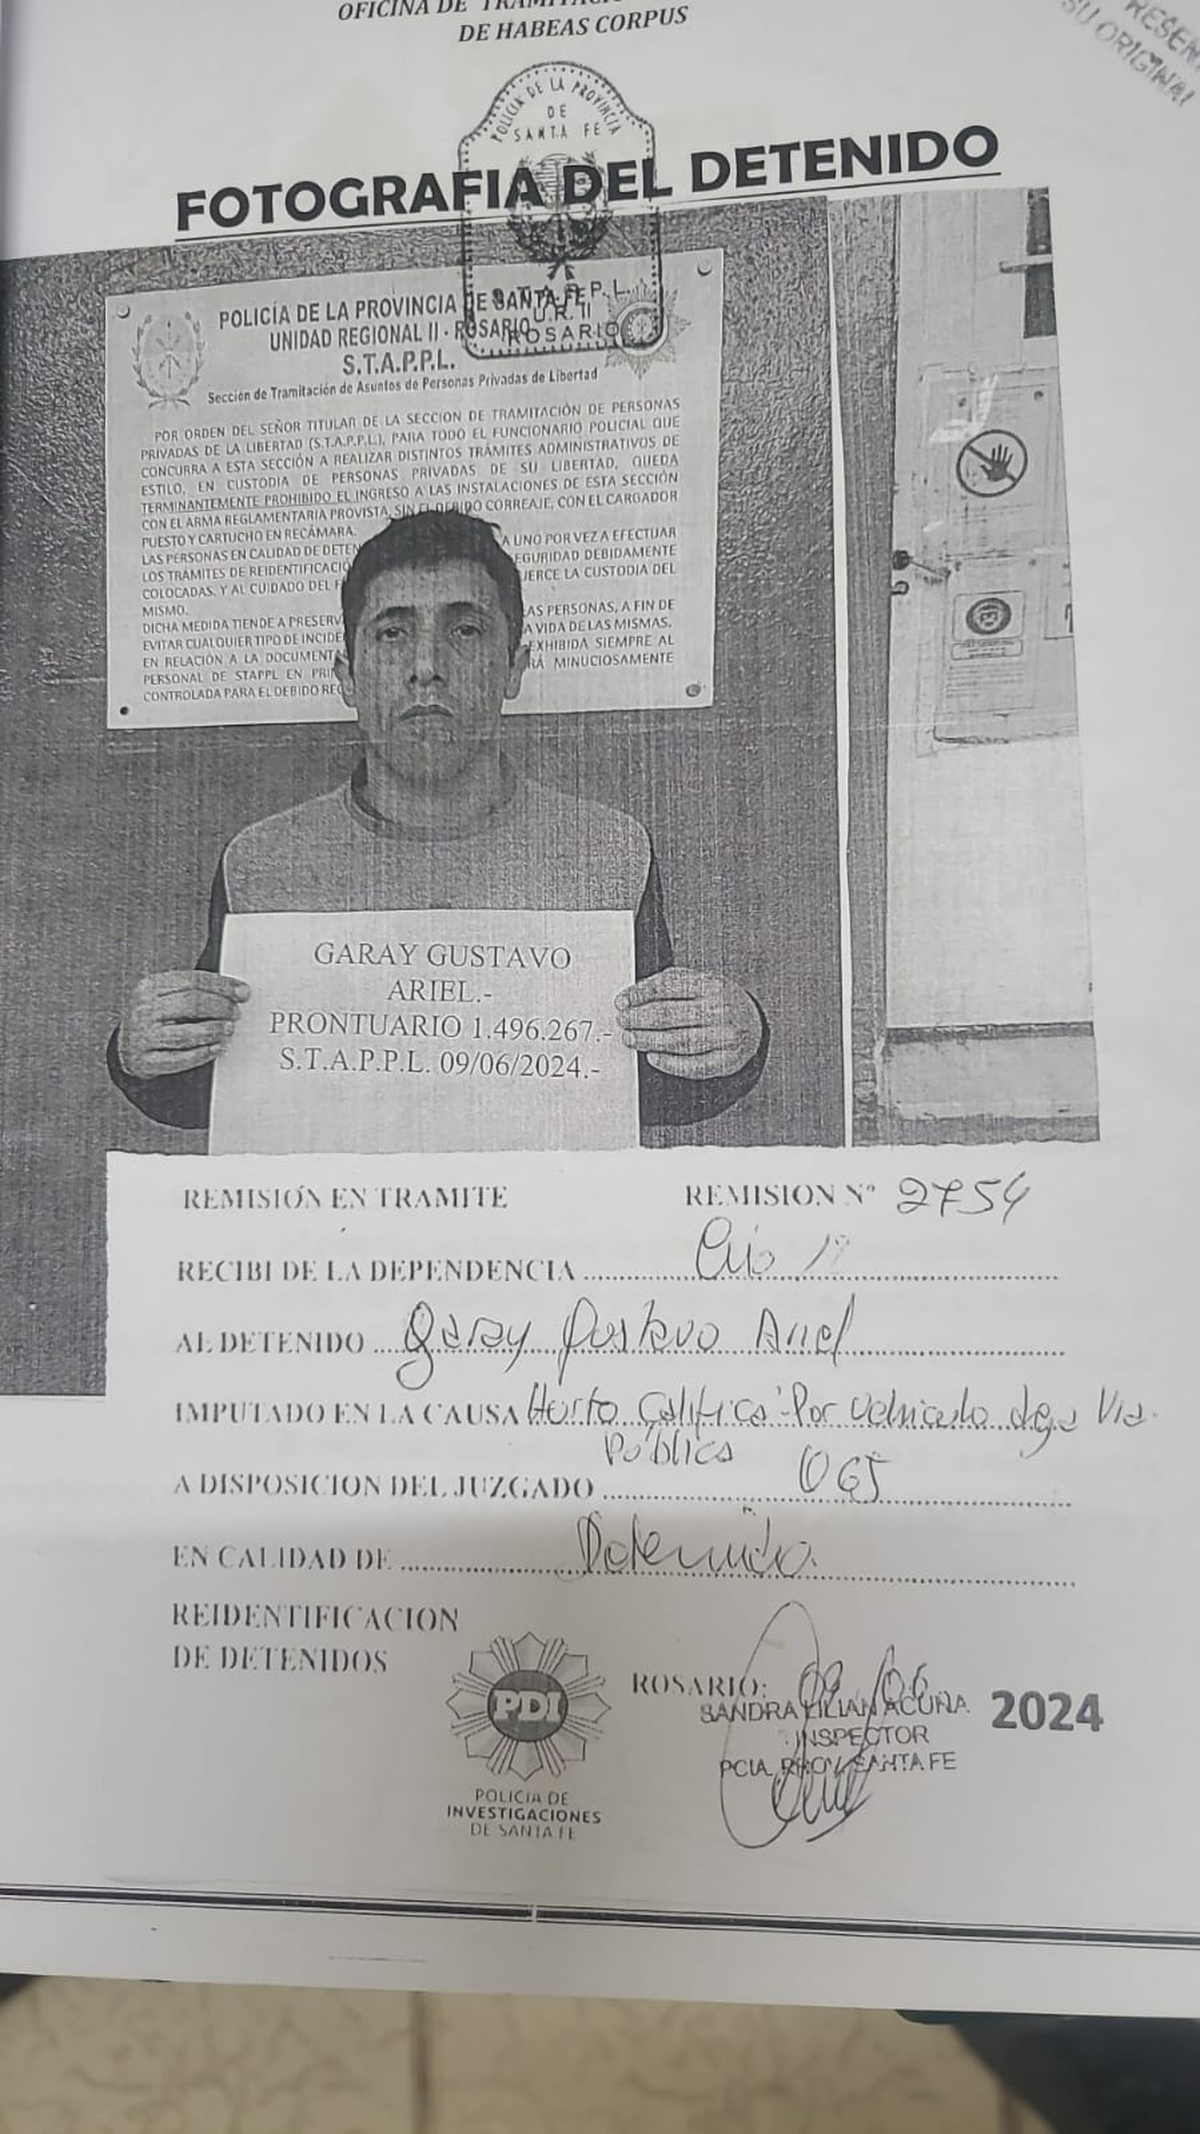 OFICINA DE TRAMITACIO
DE HABEAS CORPUS
RESEN
SU ORIGINAL
POLICIA DE LA PROVINCIA
DE
SANTA FE
FOTOGRAFIA DEL DETENIDO
S.T.A.P.P.L.
U.R. II
ROSARIO
POLICÍA DE LA PROVINCIA DE SANTA FE
UNIDAD REGIONAL II - ROSARIO
S.T.A.P.P.L.
Sección de Tramitación de Asuntos de Personas Privadas de Libertad
POR ORDEN DEL SEÑOR TITULAR DE LA SECCION DE TRAMITACIÓN DE PERSONAS
PRIVADAS DE LA LIBERTAD (S.T.A.P.P.L.), PARA TODO EL FUNCIONARIO POLICIAL QUE
CONCURRA A ESTA SECCIÓN A REALIZAR DISTINTOS TRÁMITES ADMINISTRATIVOS DE
ESTILO, EN CUSTODIA DE PERSONAS PRIVADAS DE SU LIBERTAD, QUEDA
TERMINANTEMENTE PROHIBIDO EL INGRESO A LAS INSTALACIONES DE ESTA SECCIÓN
CON EL ARMA REGLAMENTARIA PROVISTA, SIN EL DEBIDO CORREAJE, CON EL CARGADOR
PUESTO Y CARTUCHO EN RECÁMARA.
LAS PERSONAS EN CALIDAD DE DETEN A UNO POR VEZ A EFECTUAR
LOS TRÁMITES DE REIDENTIFICACIÓ EGURIDAD DEBIDAMENTE
COLOCADAS, Y AL CUIDADO DEL F JERCE LA CUSTODIA DEL
MISMO.
DICHA MEDIDA TIENDE A PRESERV AS PERSONAS, A FIN DE
EVITAR CUALQUIER TIPO DE INCIDE A VIDA DE LAS MISMAS.
EN RELACIÓN A LA DOCUMENTA EXHIBIDA SIEMPRE AL
PERSONAL DE STAPPL EN PRI RÁ MINUCIOSAMENTE
CONTROLADA PARA EL DEBIDO REG
GARAY GUSTAVO
ARIEL.-
PRONTUARIO 1.496.267.-
S.T.A.P.P.L. 09/06/2024.-
REMISIÓN EN TRAMITE REMISION Nº 2754
RECIBI DE LA DEPENDENCIA
AL DETENIDO Garay Gustavo Ariel
IMPUTADO EN LA CAUSA Hurto Califica Por Vehiculo deja Via
Pública
A DISPOSICION DEL JUZGADO OGJ
EN CALIDAD DE Detenido.
REIDENTIFICACION
DE DETENIDOS
PDI
POLICIA DE
INVESTIGACIONES
DE SANTA FE
ROSARIO: 09/06 2024
SANDRA LILIAN ACUÑA
INSPECTOR
PCIA. PROV. SANTA FE